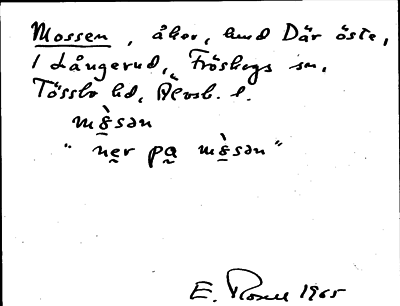 Mossen, åker, hmd Där öste,
1 Långerud, Fröskogs sn.
Tössbo hd, Älvsb. l.
mòsən
"ner pa mòsən"
E. Rosell 1965